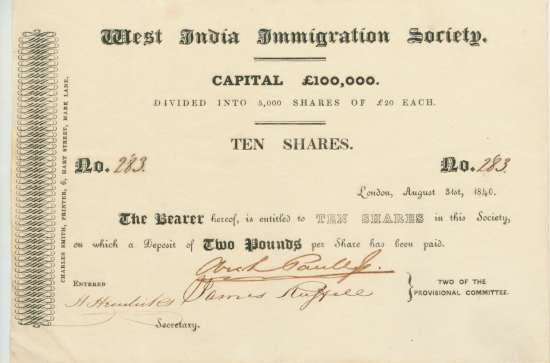 West India Immigration Society.
CAPITAL £100,000.
DIVIDED INTO 5,000 SHARES OF £20 EACH.
TEN SHARES.
No. 283. No. 283.
London, August 31st, 1840.
The Bearer hereof, is entitled to TEN SHARES in this Society,
on which a Deposit of Two Pounds per Share has been paid.
ENTERED
James
Secretary.
TWO OF THE
PROVISIONAL COMMITTEE.
CHARLES SMITH, PRINTER, 6, HART STREET, MARK LANE.